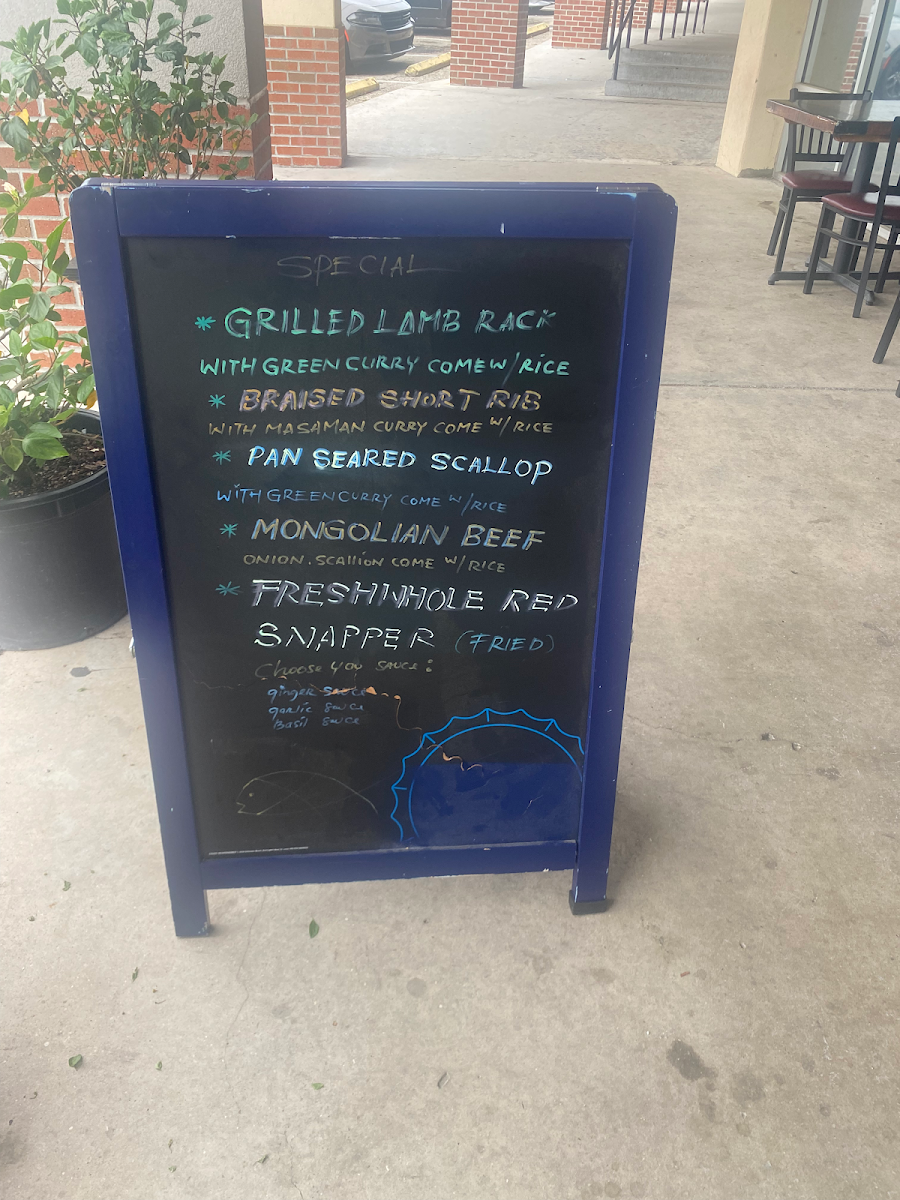 SPECIAL
* GRILLED LAMB RACK
WITH GREEN CURRY COME W/RICE
* BRAISED SHORT RIB
WITH MASAMAN CURRY COME W/RICE
* PAN SEARED SCALLOP
WITH GREEN CURRY COME W/RICE
* MONGOLIAN BEEF
ONION. SCALLION COME W/RICE
* FRESH WHOLE RED
SNAPPER (FRIED)
Choose you sauce:
ginger sauce
garlic sauce
Basil sauce